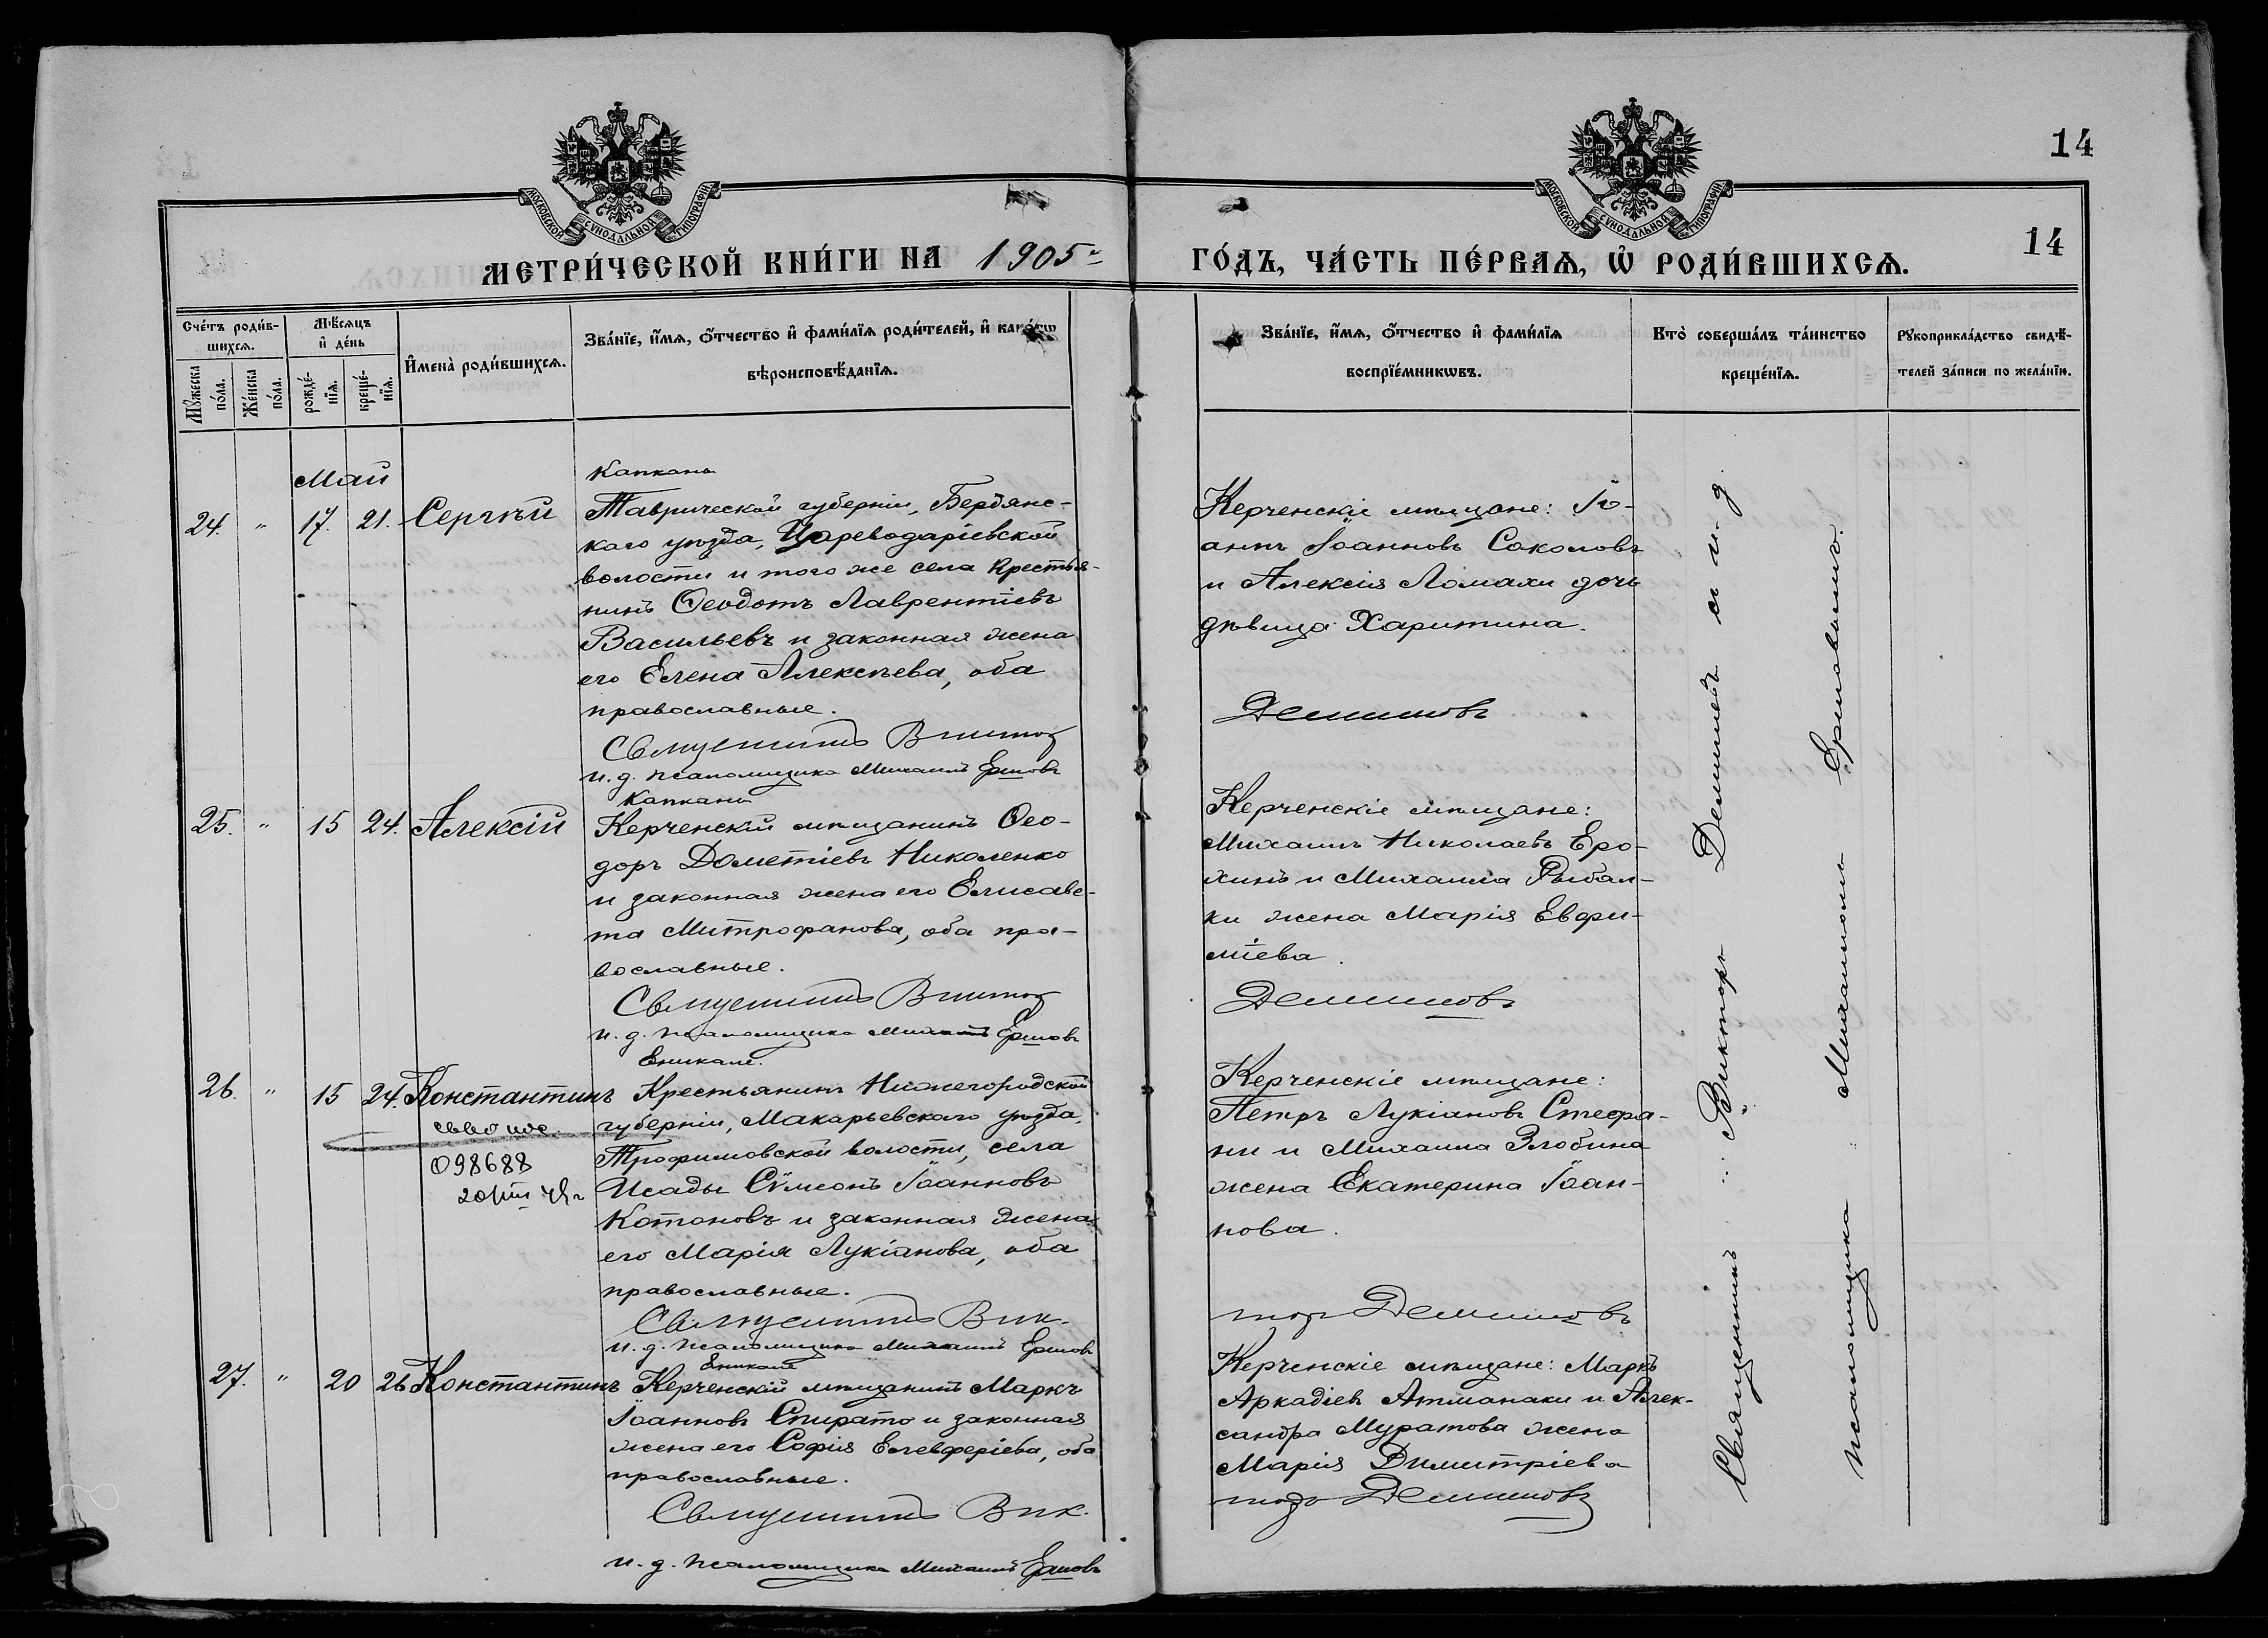 14
МОСКОВСКОЙ СѴНОДАЛЬНОЙ ТИПОГРАФІИ
МОСКОВСКОЙ СѴНОДАЛЬНОЙ ТИПОГРАФІИ
МЕТРИ́ЧЕСКОЙ КНИ́ГИ НА 1905 ГО́ДЪ, ЧА́СТЬ ПЕ́РВАѦ, Ѡ҆ РОДИ́ВШИХСѦ.
14
Сче́тъ роди́в-
шихсѧ.
Мꙋ́жеска
по́ла.
Же́нска
по́ла.
Мѣ́сѧцъ
и҆ де́нь
рожде́-
нїѧ.
креще́-
нїѧ.
И҆мена̀ роди́вшихсѧ.
Зва́нїе, и҆́мѧ, ѻ҆́тчество и҆ фами́лїѧ роди́телей, и҆ како́гѡ
вѣроисповѣ́данїѧ.
Зва́нїе, и҆́мѧ, ѻ҆́тчество и҆ фами́лїѧ
воспрїе́мникѡвъ.
Кто̀ соверша́лъ та́инство
креще́нїѧ.
Рꙋкоприкла́дство свидѣ́-
телей за́писи по жела́нїю.
Май
24. " 17. 21. Сергѣй
Капканы
Таврической губерніи, Бердянс-
каго уѣзда, Цареводаріевской
волости и того же села крестья-
нинъ Ѳеодотъ Лаврентіевъ
Васильевъ и законная жена
его Елена Алексѣева, оба
православные.
Священникъ Виктор
и. д. псаломщика Михаилъ Ершовъ
Керченскіе мѣщане: Іо-
аннъ Іоанновъ Соколовъ
и Алексія Ломахи дочь
дѣвица Харитина.
Демишовъ
25. " 15 24. Алексій
Капканы
Керченскій мѣщанинъ Ѳео-
доръ Дометіевъ Николенко
и законная жена его Елисаве-
та Митрофанова, оба пра-
вославные.
Священникъ Виктор
и. д. псаломщика Михаилъ Ершовъ
Керченскіе мѣщане:
Михаилъ Николаевъ Еро-
хинъ и Михаила Рыбал-
ки жена Марія Евфи-
міева.
Демишовъ
26. " 15 24. Константинъ
098688
Еникале.
Крестьянинъ Нижегородской
губерніи, Макарьевскаго уѣзда,
Трофимовской волости, села
Исады Сѵмеонъ Іоанновъ
Котоновъ и законная жена
его Марія Лукіанова, оба
православные.
Священникъ Вик-
и. д. псаломщика Михаилъ Ершовъ
Керченскіе мѣщане:
Петръ Лукіановъ Стефа-
ни и Михаила Злобина
жена Екатерина Іоан-
нова.
торъ Демишовъ
27. " 20 26 Константинъ
Еникале
Керченскій мѣщанинъ Маркъ
Іоанновъ Спирато и законная
жена его Софія Елевферіева, оба
православные.
Священникъ Вик.
и. д. псаломщика Михаилъ Ершовъ
Керченскіе мѣщане: Маркъ
Аркадіевъ Атманаки и Алек-
сандра Муратова жена
Марія Димитріева
торъ Демишовъ
Священникъ Викторъ Демишевъ съ и. д.
псаломщика Михаиломъ Ершовымъ.